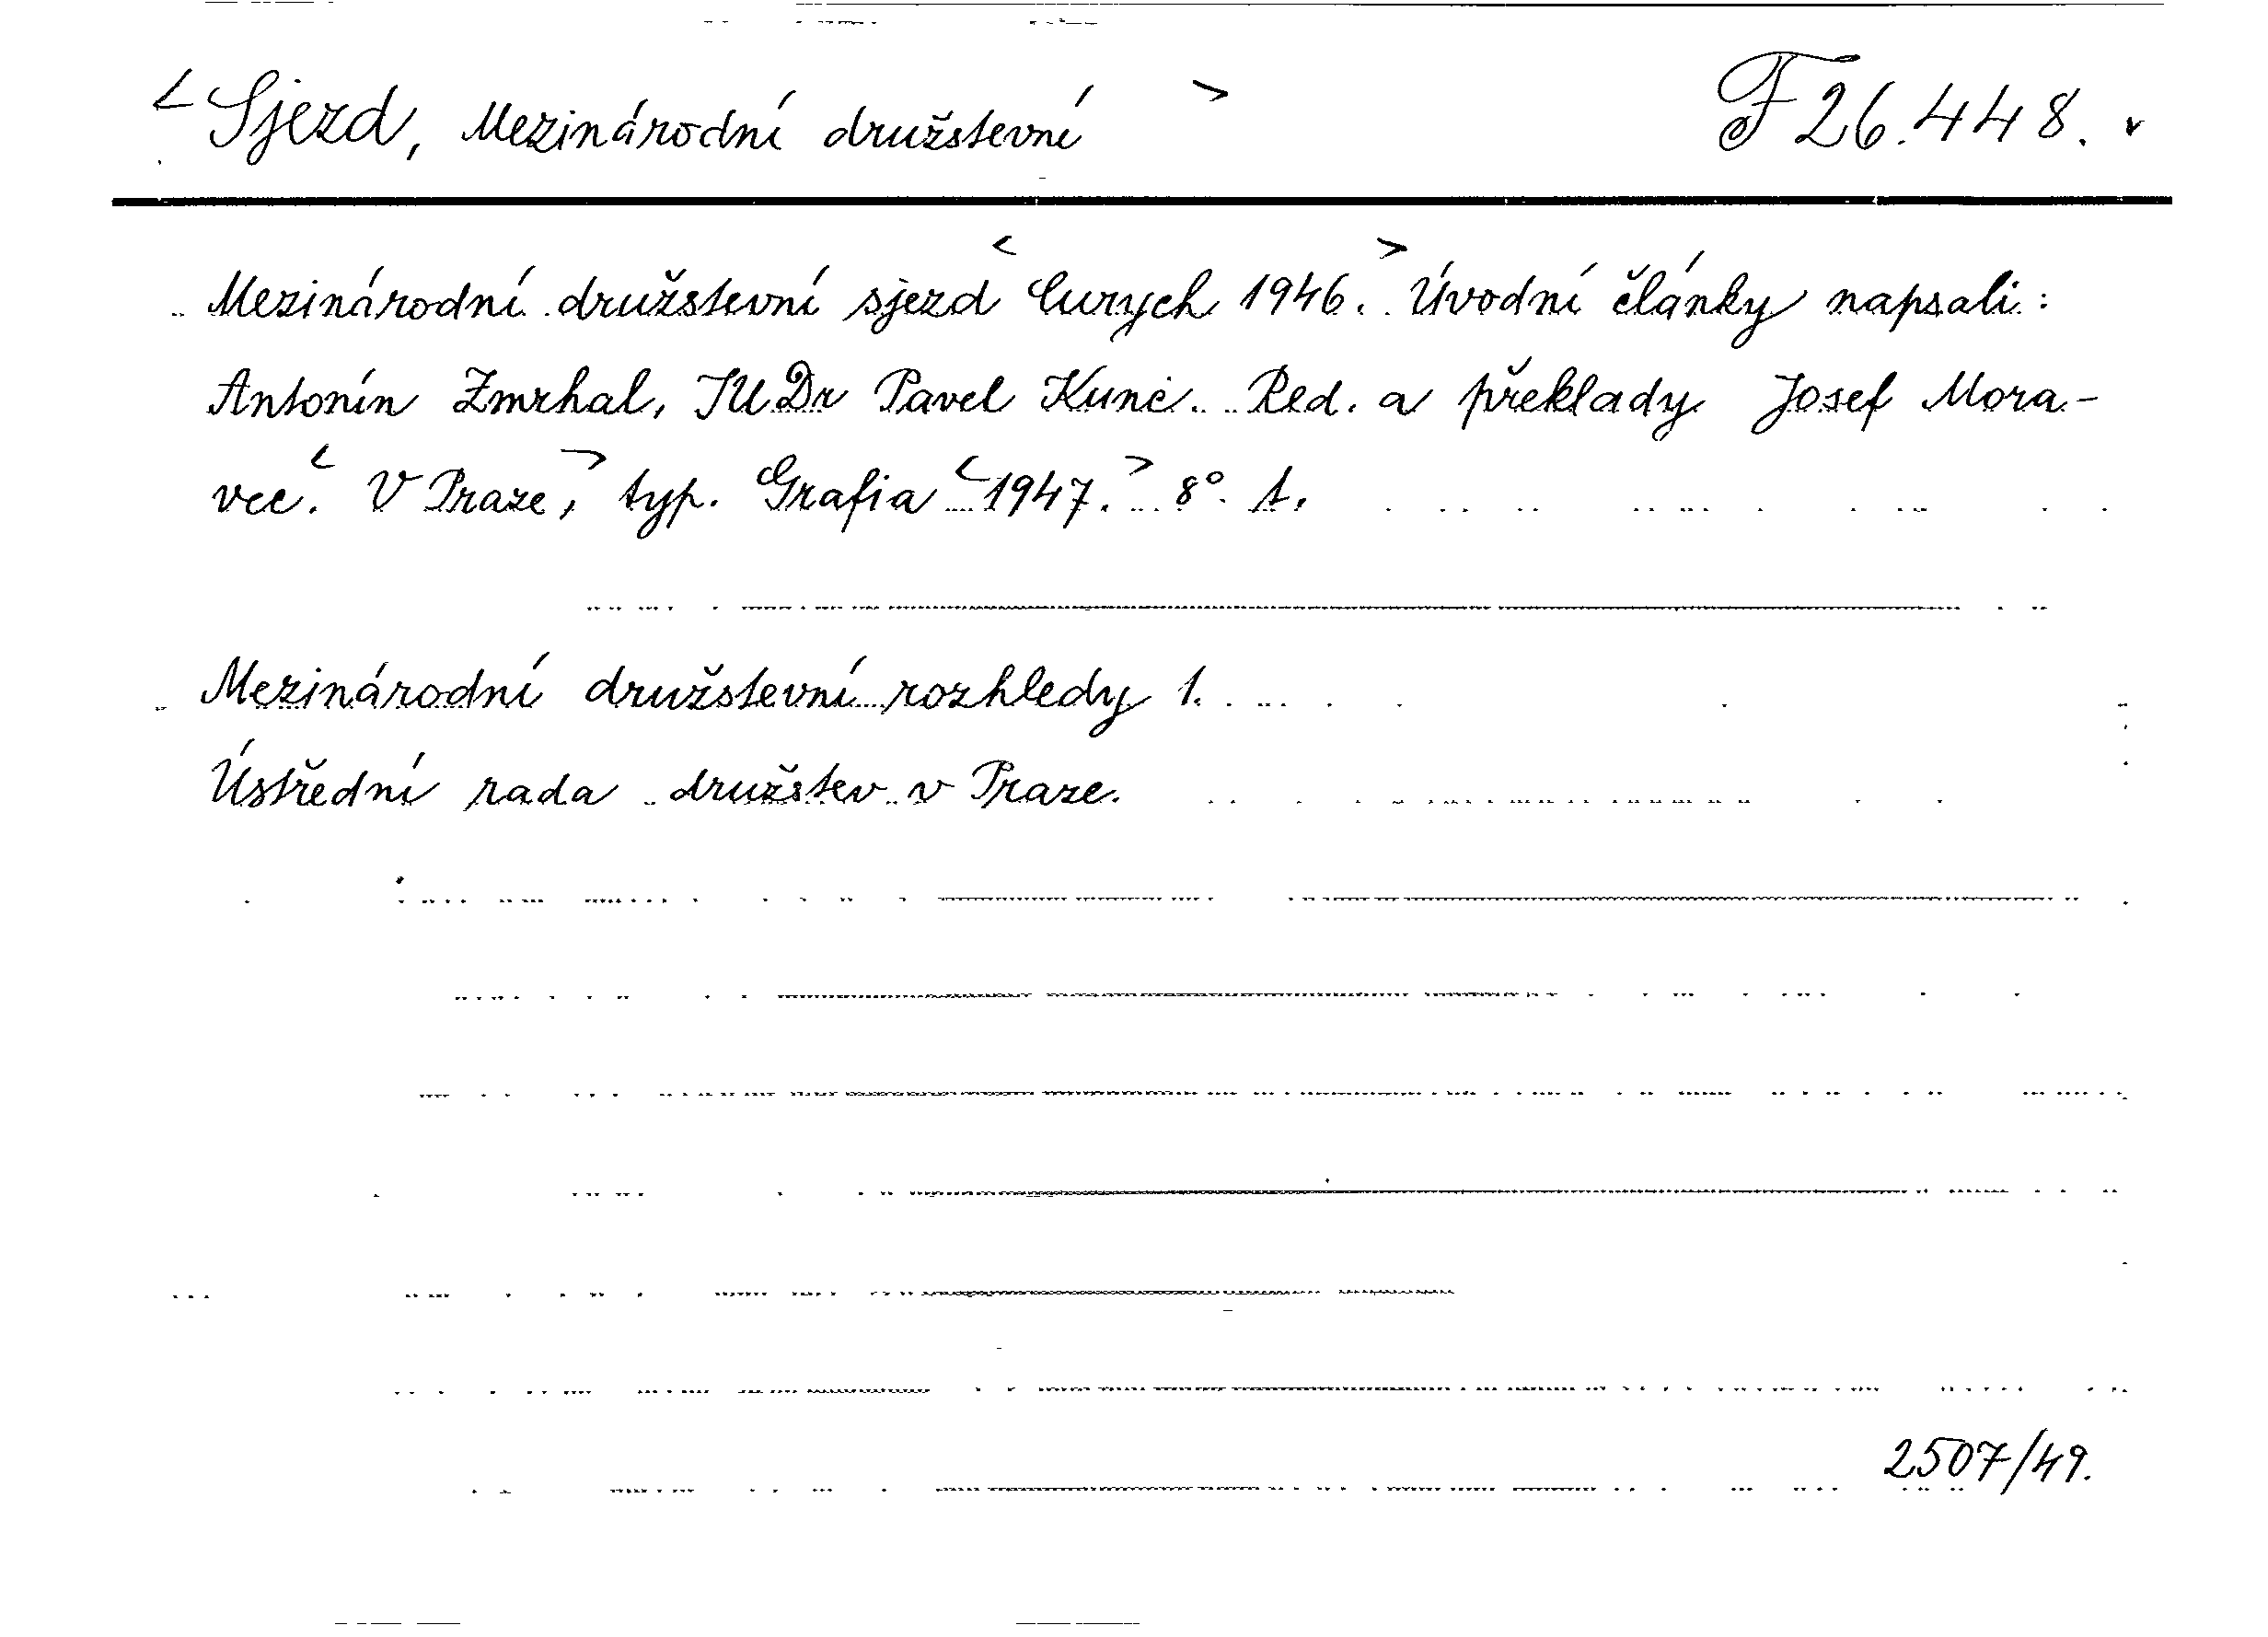 <Sjezd, Mezinárodní družstevní> F 26.448.
Mezinárodní družstevní sjezd <Curych 1946.> Úvodní články napsali:
Antonín Zmrhal, JUDr Pavel Kunc. Red. a překlady Josef Mora-
vec. <V Praze,> typ. Grafia <1947.> 8°. 1.
Mezinárodní družstevní rozhledy 1.
Ústřední rada družstev v Praze.
2507/49.